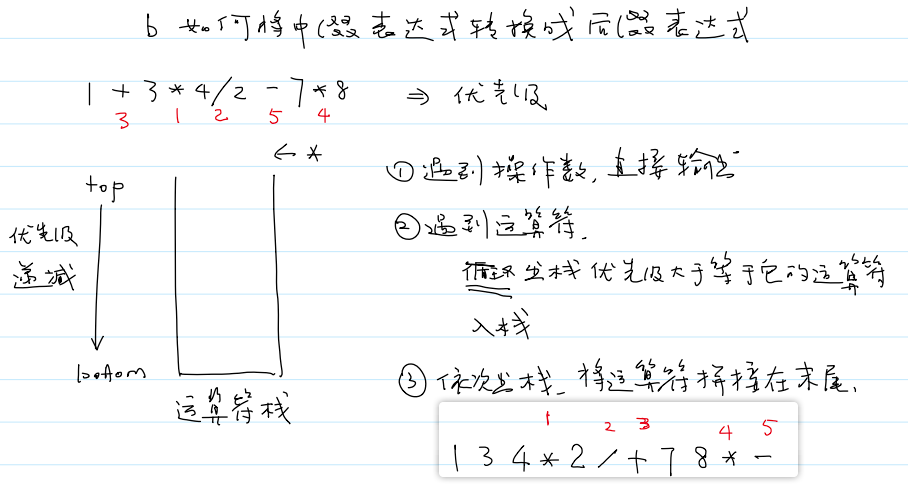 b 如何将中缀表达式转换成后缀表达式
1 + 3 * 4 / 2 - 7 * 8 ⇒ 优先级
3 1 2 5 4
← *
① 遇到操作数, 直接输出
top
② 遇到运算符.
优先级
递减
循环出栈优先级大于等于它的运算符
入栈
bottom
③ 依次出栈, 将运算符拼接在末尾.
运算符栈
1 2 3 4 5
1 3 4 * 2 / + 7 8 * -